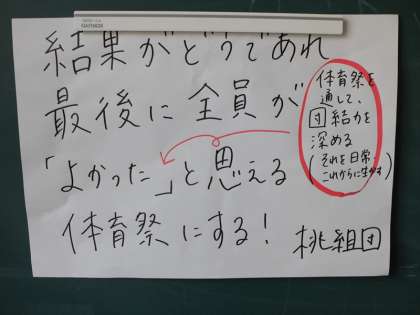 結果がどうであれ
最後に全員が
「よかった」と思える
体育祭にする!
桃組団
体育祭を
通して、
団結力を
深める
(それを日常・
これからに生かす)